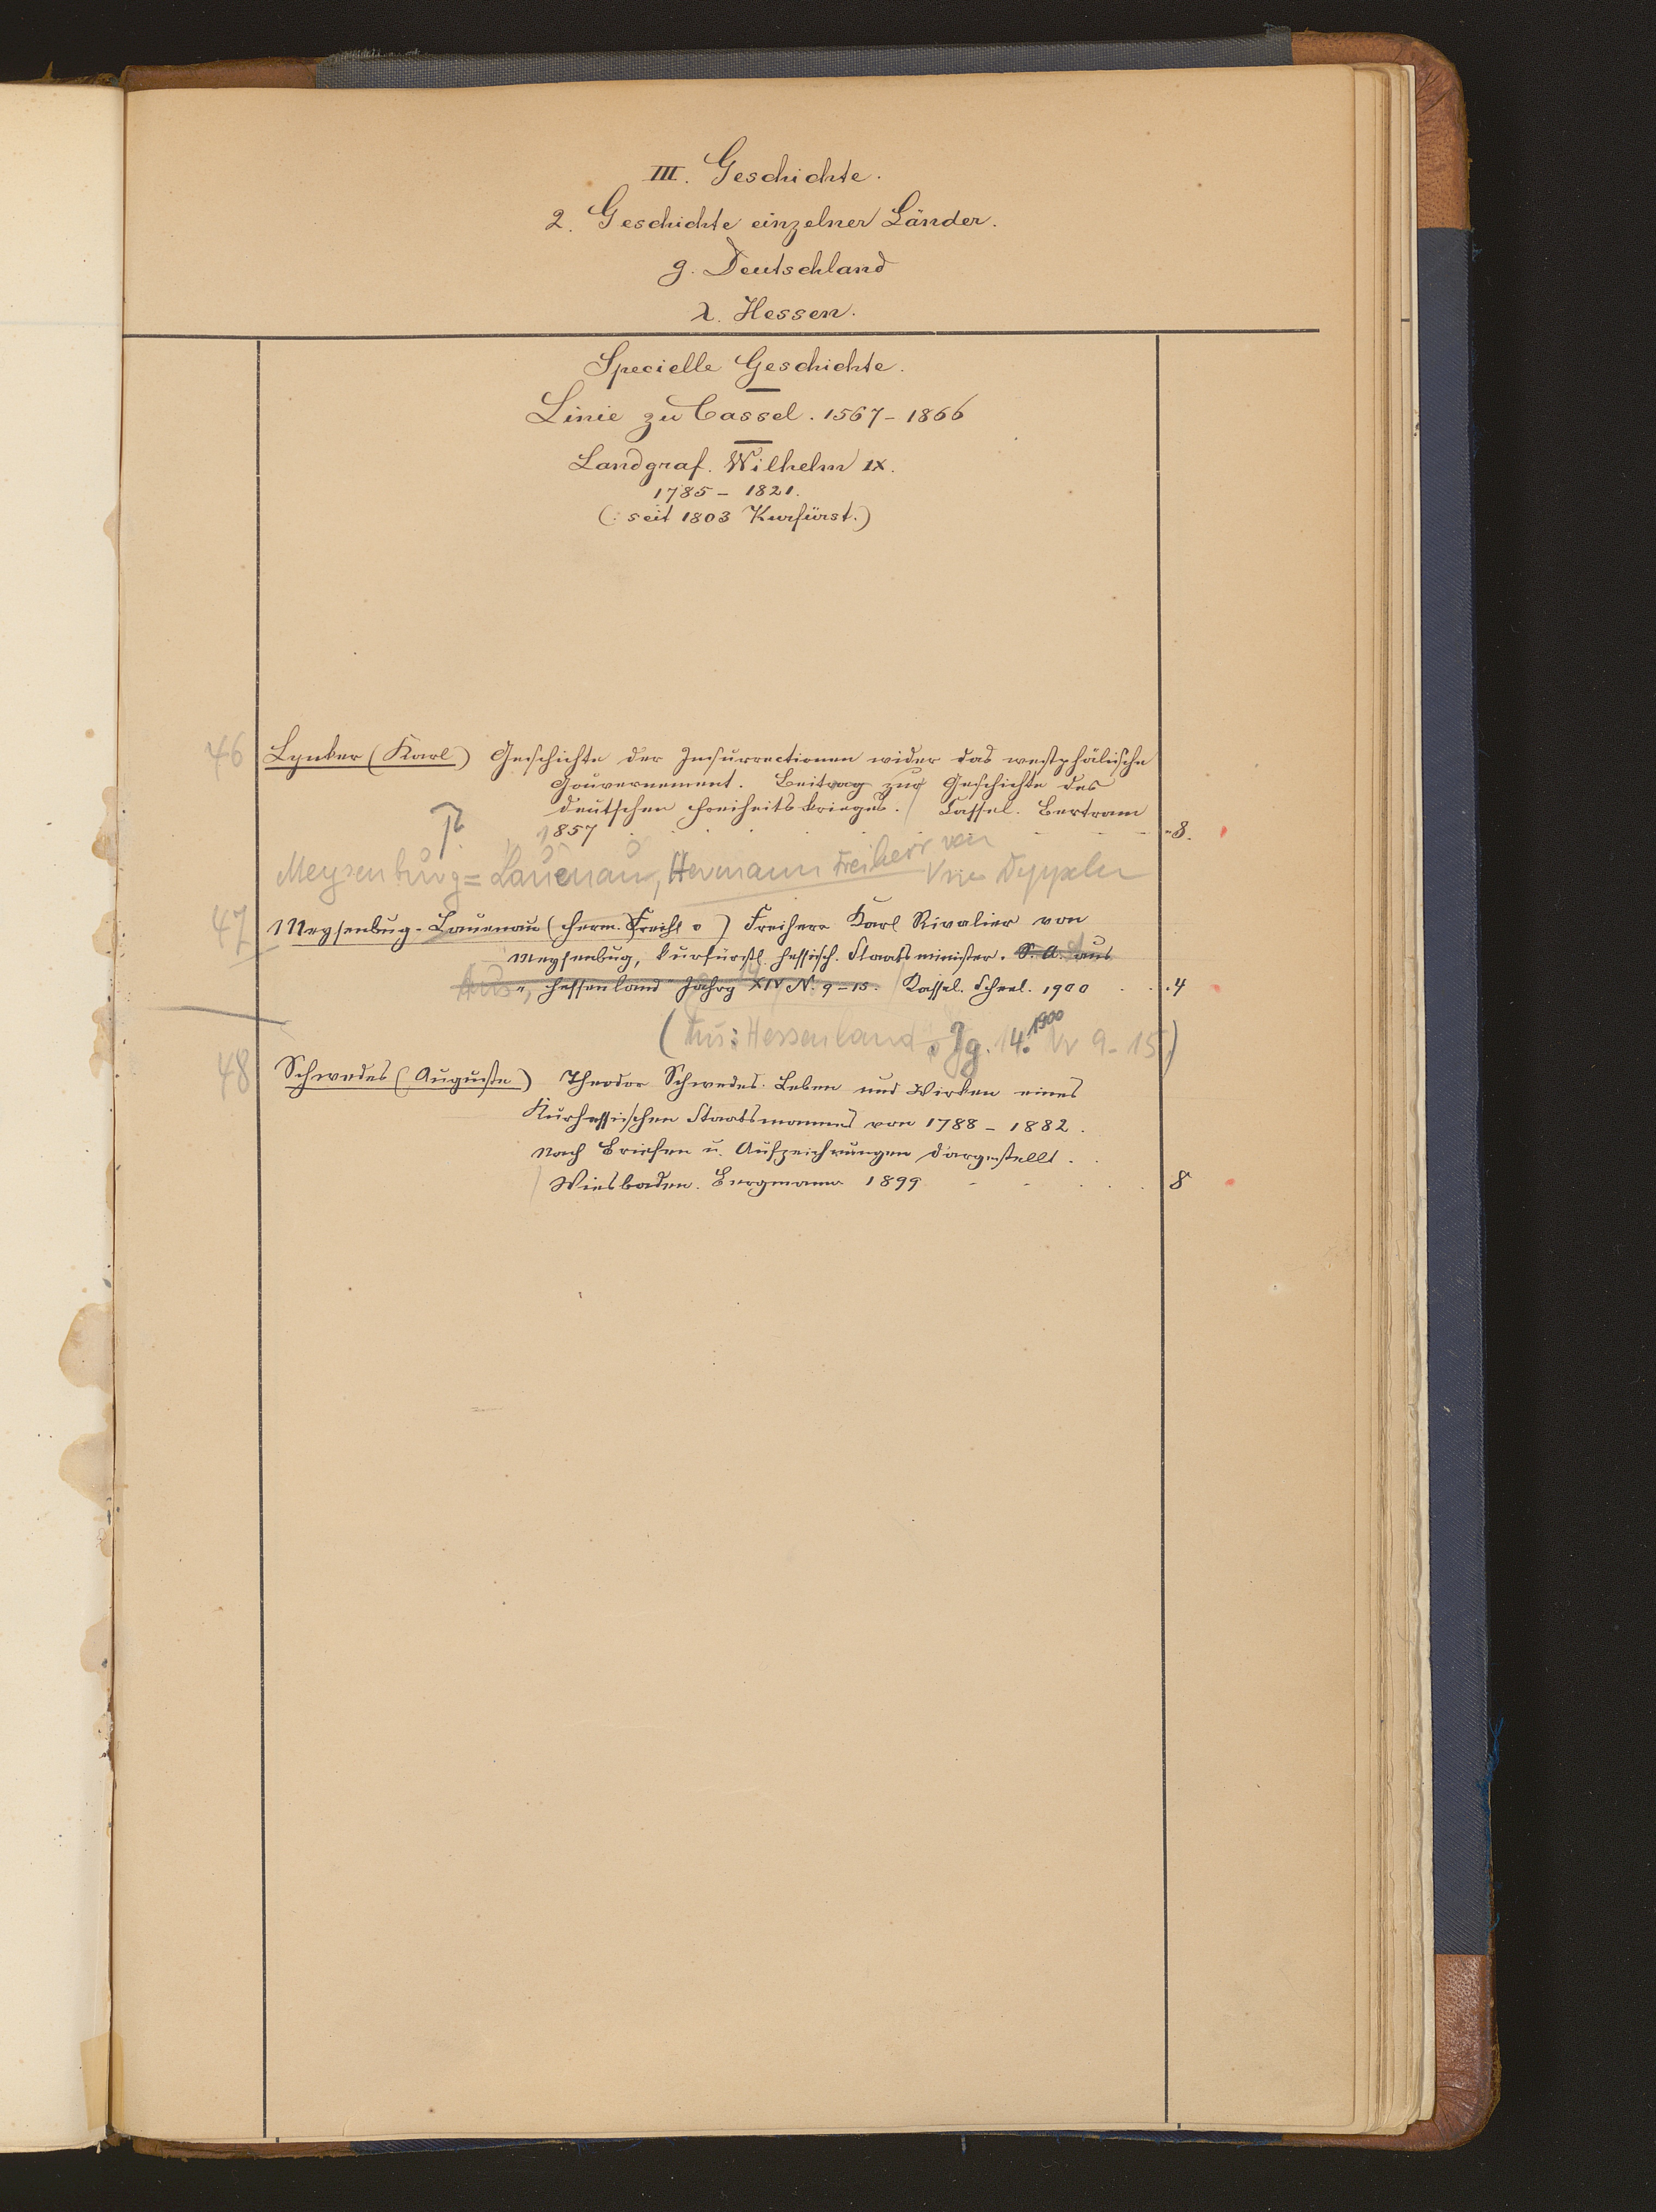 III. Geschichte.
2. Geschichte einzelner Länder.
g. Deutschland
λ. Hessen.
Specielle Geschichte.
Linie zu Cassel. 1567 - 1866
Landgraf. Wilhelm IX.
1785 - 1821.
(: seit 1803 Kurfürst.)
46 Lynker (Karl) Geschichte der Insurrectionen wider das westphälische
Gouvernement. Beitrag zur Geschichte des
deutschen Freiheitskrieges. / Cassel. Bertram
1857 8.
Meysenbug = Lauenau, Hermann Freiherr von
47 Meysenbug-Lauenau (Herm. Freih v) Freiherr Karl Rivalier von
Meysenbug, kurfürstl. hessisch. Staatsminister. S. A. aus
Aus „Hessenland" Jahrg XIV N. 9-15. / Kassel. Scheel. 1900 4
(Aus: Hessenland. Jg. 14. 1900 Nr 9-15)
48 Schwedes (Auguste) Theodor Schwedes. Leben und Wirken eines
Kurhessischen Staatsmannes von 1788 - 1882.
Nach Briefen u. Aufzeichnungen dargestellt.
/ Wiesbaden. Bergmann 1899 8